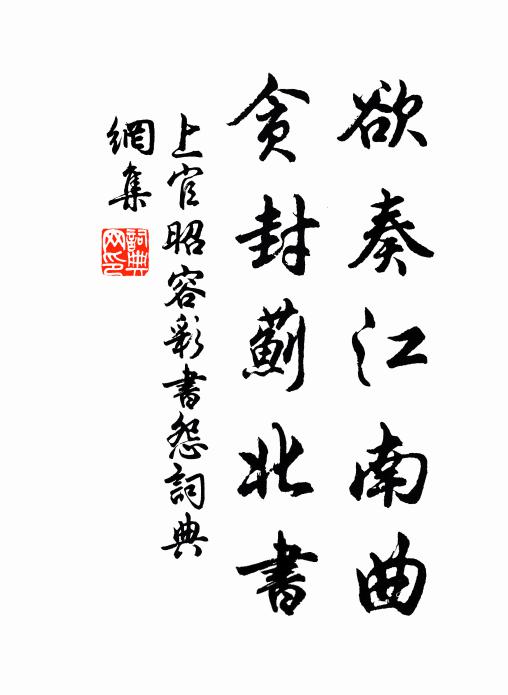 欲奏江南曲
貪封薊北書
上官昭容彩書怨詞典
網集
詞典
网印